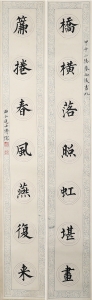 橋橫落照虹堪畫
簾捲春風燕復来